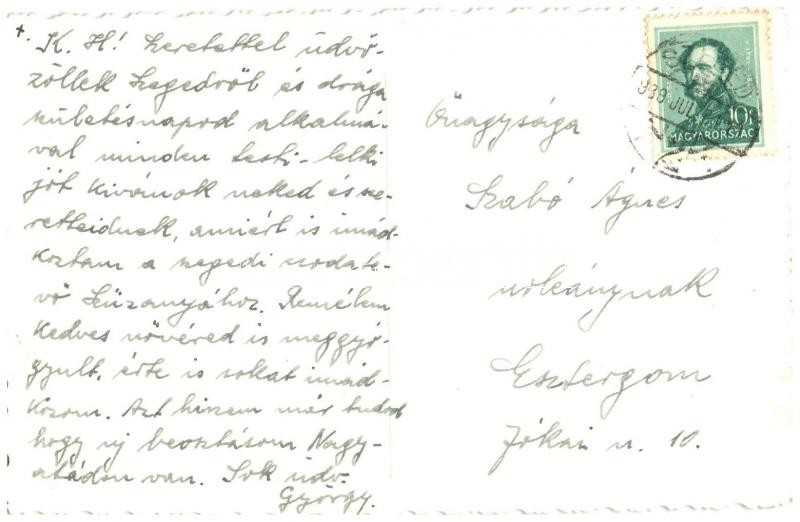 +.
K. H! Szeretettel üdvö-
zöllek Szegedről és drága
születésnapod alkalmá-
val minden testi-lelki
jót kívánok neked és sze-
retteidnek, amiért is imád-
koztam a szegedi csodate-
vő Szűzanyához. Remélem
kedves nővéred is meggyó-
gyult, érte is sokat imád-
kozom. Azt hiszem már tudod
hogy új beosztásom Nagy-
atádon van. Sok üdv.
György.
Őnagysága
Szabó Ágnes
úrleánynak
Esztergom
Jókai u. 10.
10f
MAGYARORSZÁG
939 JUL